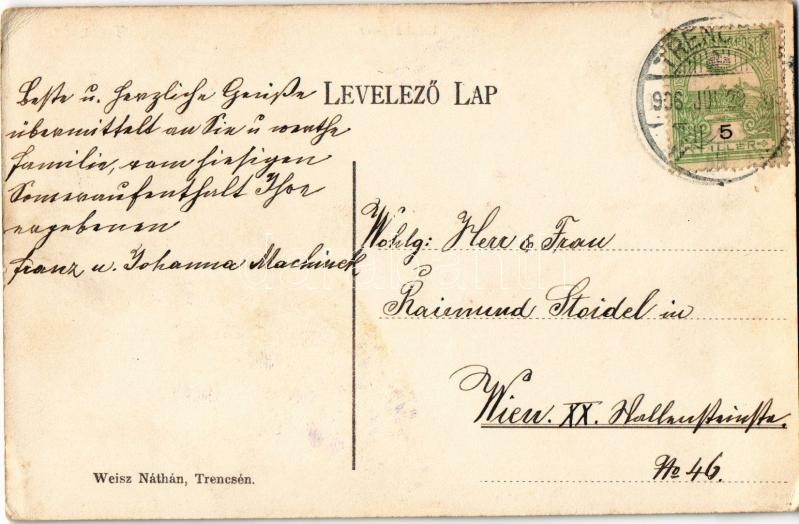 LEVELEZŐ LAP
Beste u. herzliche Grüße
übermittelt an Sie u werthe
Familie, vom hiesigen
Someraufenthalt Ihre
ergebenen
Franz u. Johanna Machinek
TRENC
906 JUL
5
FILLÉR
Wohlg: Herr & Frau
Raimund Stoidel in
Wien. XX. Wallensteinstr.
No 46.
Weisz Náthán, Trencsén.
darabanth